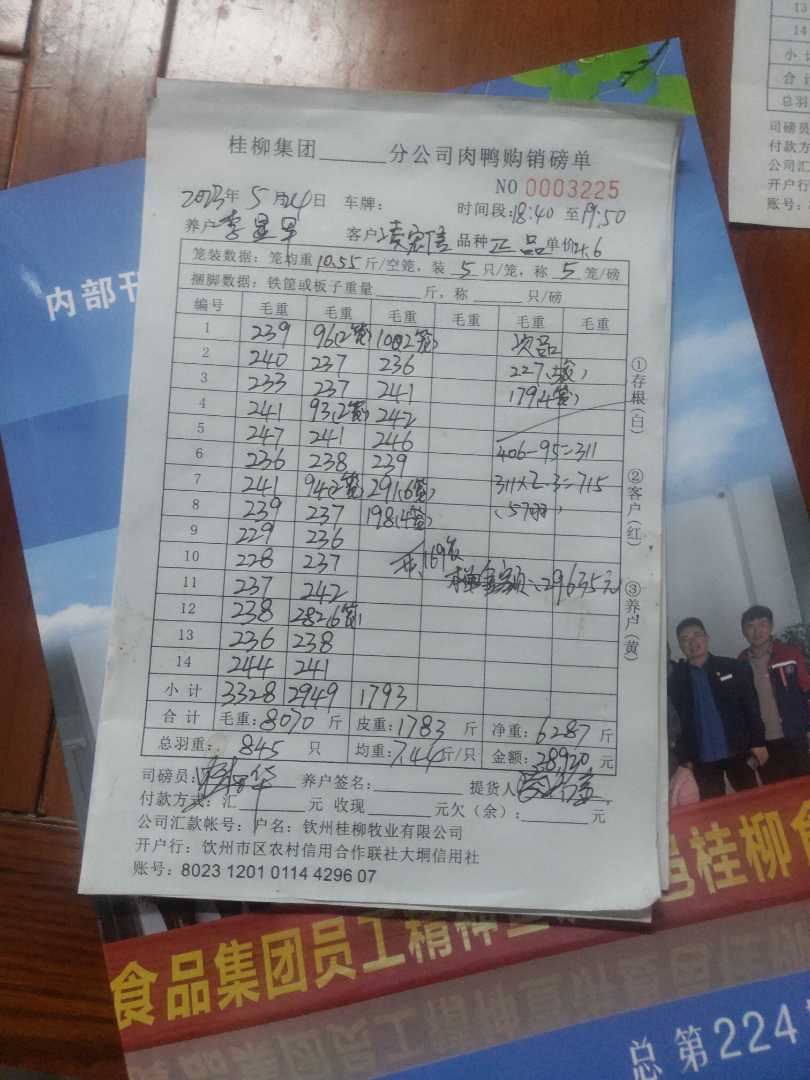 桂柳集团______分公司肉鸭购销磅单
NO 0003225
2023年 5月24日 车牌: 时间段:18:40 至19:50
养户 客户 凌宏信 品种 正品 单价4.6
笼装数据: 笼均重10.55斤/空笼, 装 5 只/笼, 称 5 笼/磅
捆脚数据: 铁筐或板子重量______斤, 称______只/磅
编号 毛重 毛重 毛重 毛重 毛重 毛重
1 239 96(2笼) 100(2笼) 次品
2 240 237 236 227
3 233 237 241 179(4笼)
4 241 93(2笼) 242
5 247 241 246 406-95=311
6 236 238 239 311×2.3=715
7 241 94(2笼) 291(6笼) (57羽)
8 239 237 198(4笼)
9 229 236
10 228 237 共169笼
11 237 242 29635元
12 238 282(6笼)
13 236 238
14 244 241
小计 3328 2949 1793
合计 毛重:8070 斤 皮重:1783 斤 净重:6287 斤
总羽重: 845 只 均重:7.44斤/只 金额:28920元
司磅员: 养户签名: 提货人
付款方式: 汇______元 收现______元欠(余):______元
公司汇款帐号: 户名: 钦州桂柳牧业有限公司
开户行: 钦州市区农村信用合作联社大垌信用社
账号: 8023 1201 0114 4296 07
①存根(白)
②客户(红)
③养户(黄)
内部刊
食品集团员工精神
桂柳食
总第224
13
14
小计
合
总羽
司磅员
付款方
公司汇
开户行
账号: